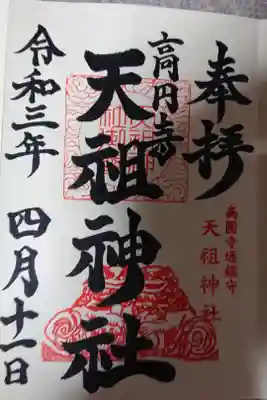 奉拝
高圓寺通鎮守
天祖神社
高円寺
天祖神社
令和三年
四月十一日